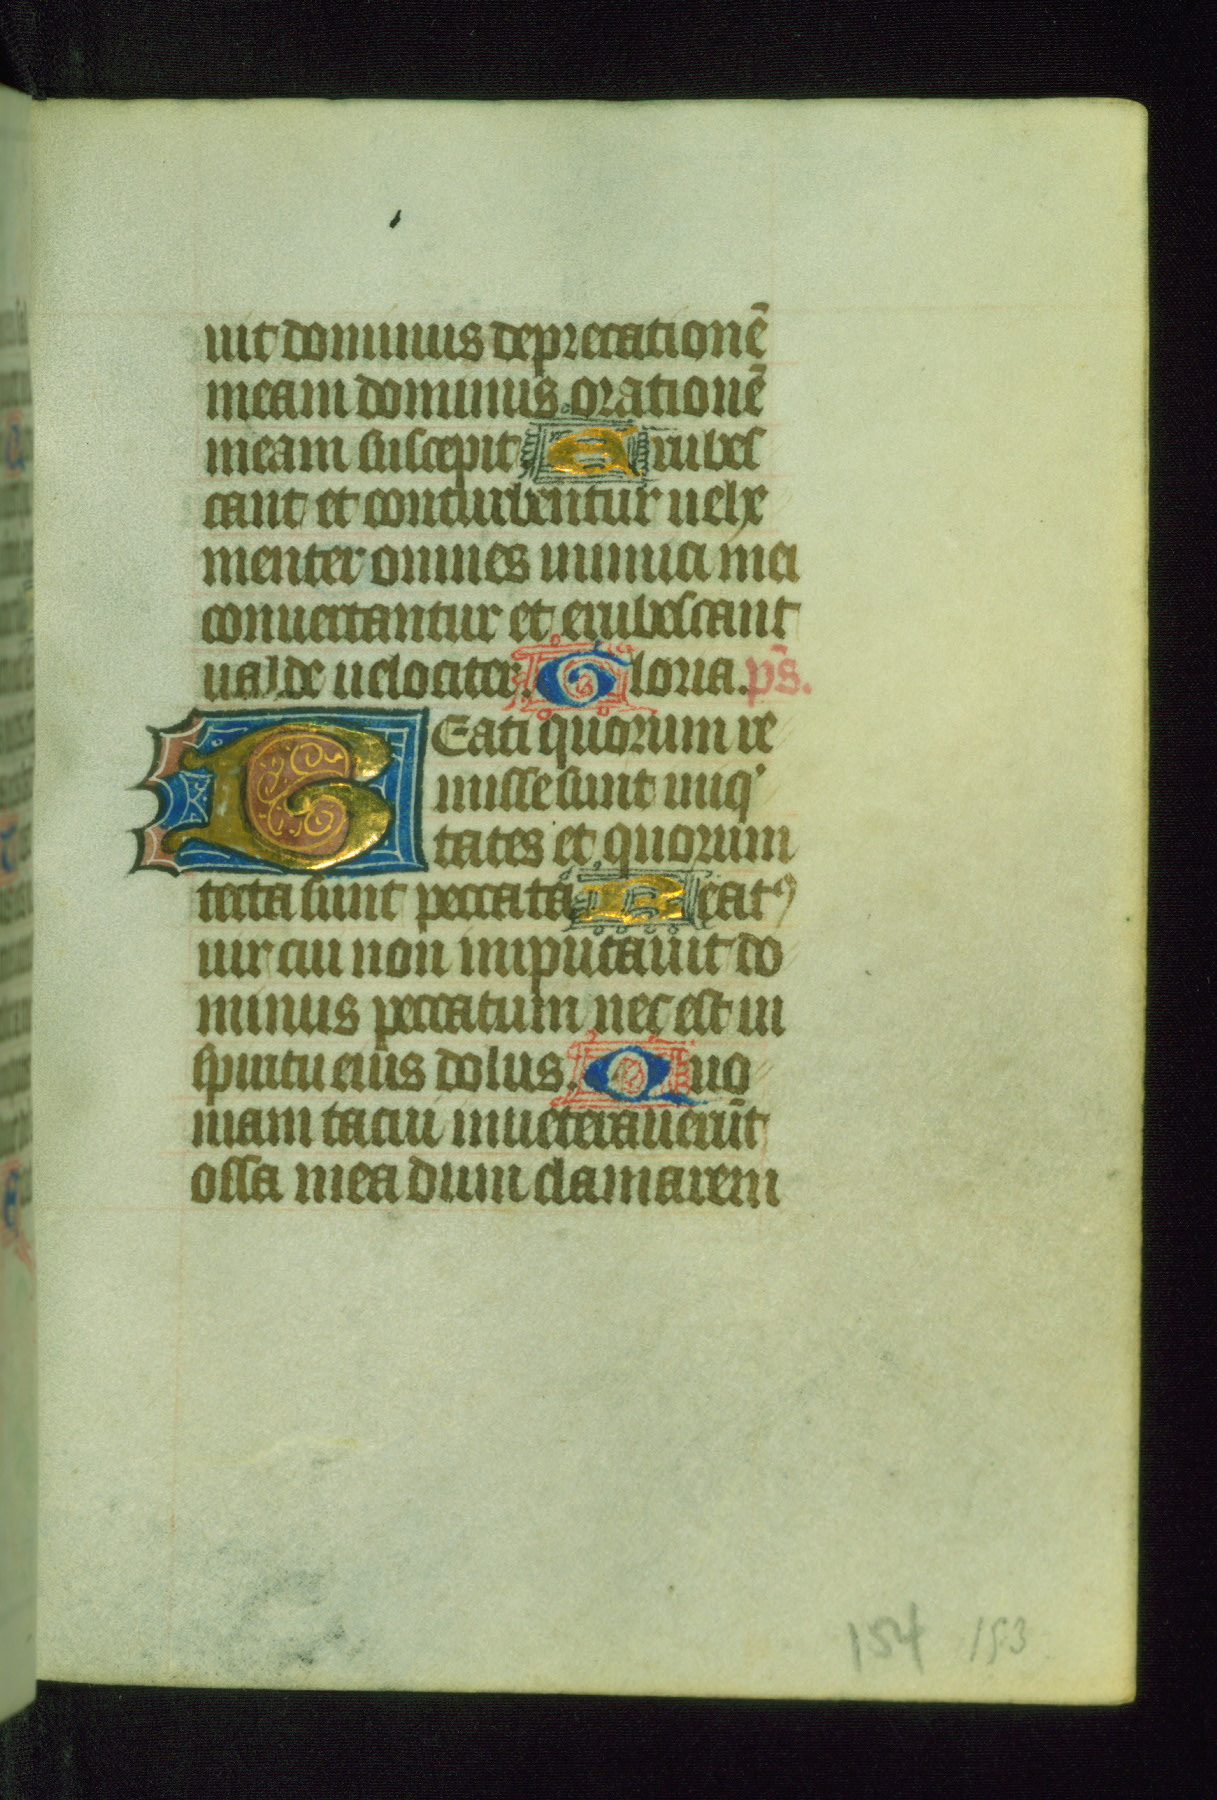 uit dominus deprecationē
meam dominus orationē
meam suscepit. Erubes
cant et conturbentur uehe
menter omnes inimici mei
conuertantur et erubescant
ualde uelociter. Gloria. p̄s.
BEati quorum re
misse sunt iniq'
tates et quorum
tecta sunt peccata Beatꝰ
uir cui non imputauit do
minus peccatum nec est in
spiritu eius dolus. Quo
niam tacui inueterauerūt
ossa mea dum clamarem
154 153